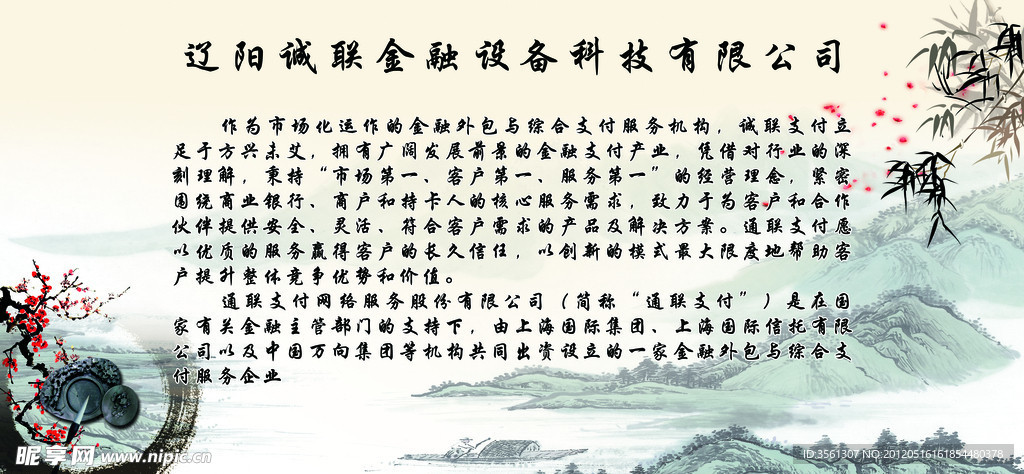 辽阳诚联金融设备科技有限公司
作为市场化运作的金融外包与综合支付服务机构，诚联支付立
足于方兴未艾，拥有广阔发展前景的金融支付产业，凭借对行业的深
刻理解，秉持“市场第一、客户第一、服务第一”的经营理念，紧密
围绕商业银行、商户和持卡人的核心服务需求，致力于为客户和合作
伙伴提供安全、灵活、符合客户需求的产品及解决方案。通联支付愿
以优质的服务赢得客户的长久信任，以创新的模式最大限度地帮助客
户提升整体竞争优势和价值。
通联支付网络服务股份有限公司（简称“通联支付”）是在国
家有关金融主管部门的支持下，由上海国际集团、上海国际信托有限
公司以及中国万向集团等机构共同出资设立的一家金融外包与综合支
付服务企业
昵享网 www.nipic.cn
ID:3561307 NO:20120516161854480378